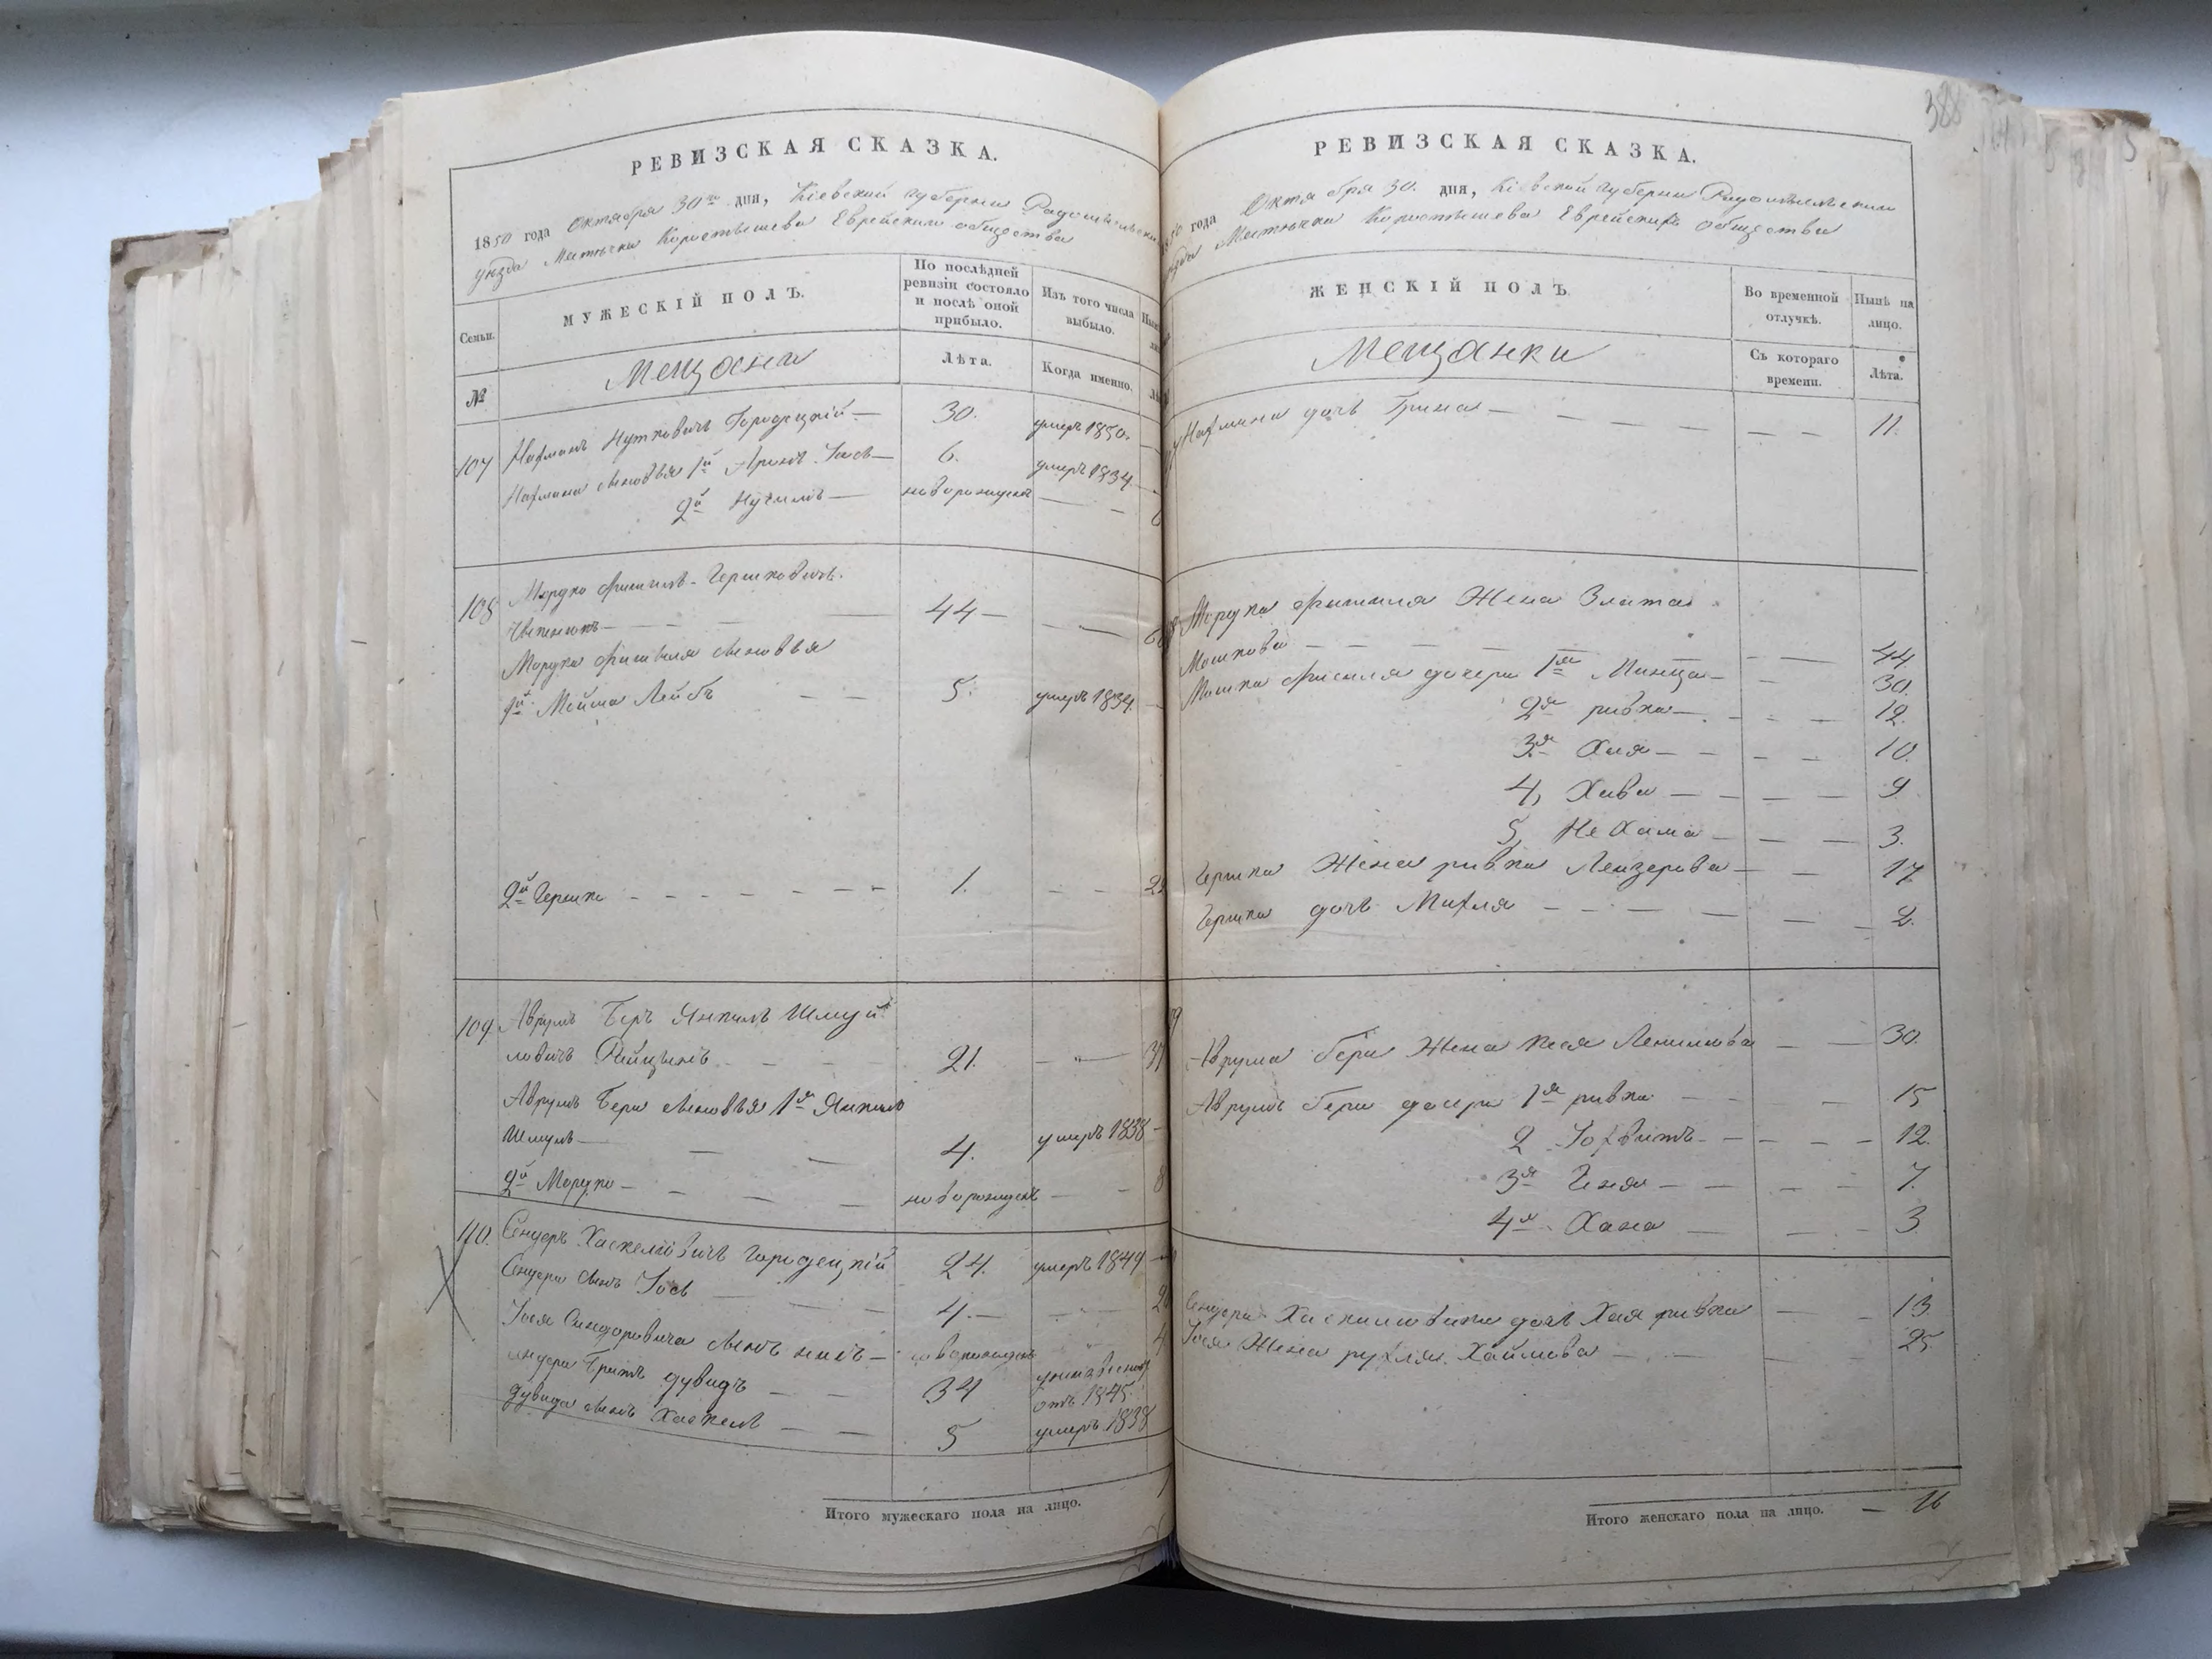 РЕВИЗСКАЯ СКАЗКА.
1850 года Октября 30го дня, Кіевской губерніи Радомысльскаго
уѣзда Мѣстечка Коростышева Еврейскаго общества
Семьи.
МУЖЕСКІЙ ПОЛЪ.
По послѣдней ревизіи состояло и послѣ оной прибыло.
Изъ того числа выбыло.
№
Мещане
Лѣта.
Когда именно.
107 Нахманъ Нутковичъ Городецкій — 30. умеръ 1850.
Нахмана сыновья 1й Аронъ Іось — 6. умеръ 1834.
2й Нухимъ — новорожденъ — —
108 Мордко Фишель Гершковичъ
44 —
Мордка Фишеля сыновья
1й Мойша Лейбъ — — 5. умеръ 1834.
2й Гершко — — — 1. — —
109. Аврумъ Беръ Янкель Шмуй
ловичъ — — 21. — — 37
Аврумъ Бера сыновья 1й Янкель
Шмуль — — — 4. умеръ 1838 —
2й Мордко — — — новорожденъ — — 8
110. Сендеръ Хаскелiовичъ Городецкій 24. умеръ 1849 —
Сендера сынъ Іось — — 4. — —
Іося Сендеровича сынъ — новорожденъ 4
Сендера братъ Дувидъ — — 34
отъ 1845.
Дувида сынъ Хаскель — — 5 умеръ 1838
Итого мужескаго пола на лицо.
388
РЕВИЗСКАЯ СКАЗКА.
1850 года Октября 30. дня, Кіевской губерніи Радомысльскаго
уѣзда Мѣстечка Коростышева Еврейскаго общества
ЖЕНСКІЙ ПОЛЪ
Во временной отлучкѣ.
Нынѣ на лицо.
Мещанки
Съ котораго времени.
Лѣта.
Нахмана дочь — — — 11.
Мордка Фишеля Жена Злата
Мошкова — — — 44.
Фишеля дочери 1я — 30.
2я ривка — 12.
3я Хая — 10.
4, Хава — 9
5, Нехама — 3.
Гершка Жена ривка Лейзерова — 17
Гершка дочь — — — 2.
Аврума Бера Жена — — 30.
Аврумъ Бера дочери 1я ривка — 15
2 — — 12.
3я — — 7.
4я Хана — 3.
Сендера дочь Хая ривка — 13.
Іося Жена рухля Хаймова — — 25.
Итого женскаго пола на лицо. — 16